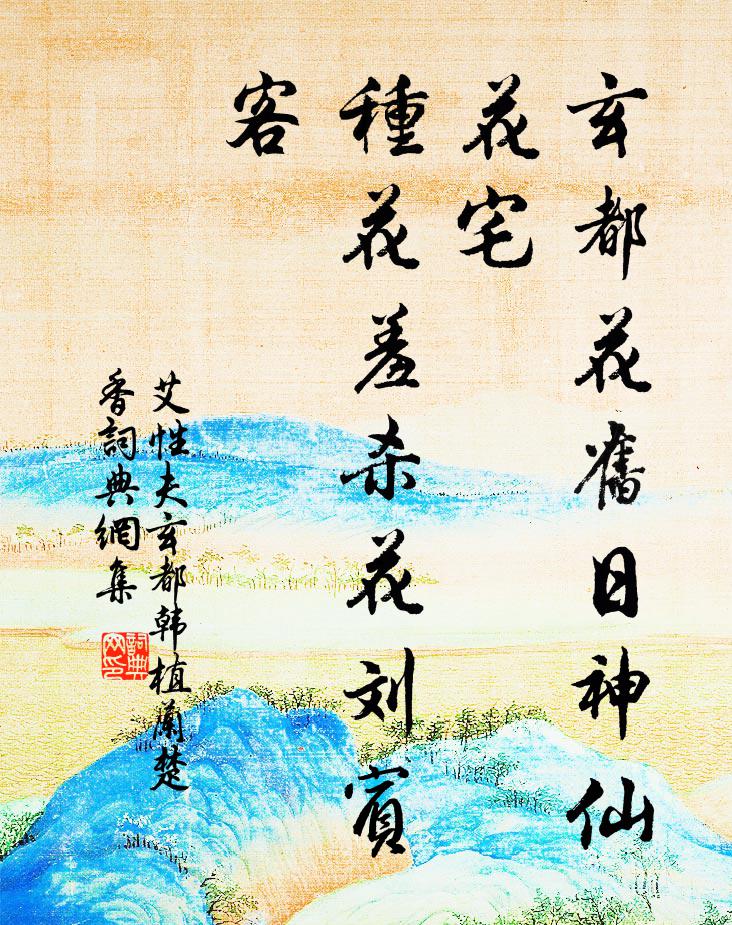 玄都花舊日神仙
花宅
種花羞杀花刘賓
客
艾性夫玄都韩植蘭楚
香詞典網集
詞典
网印